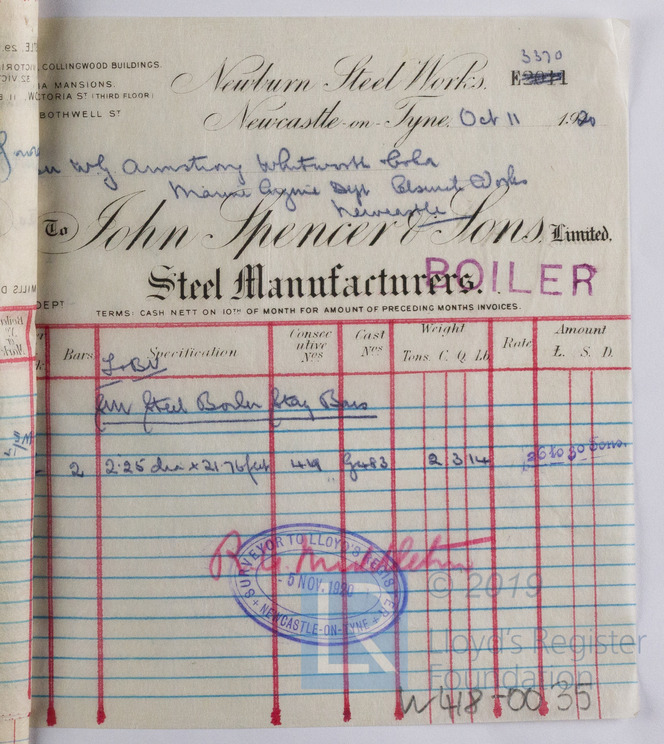 COLLINGWOOD BUILDINGS.
A MANSIONS.
TORIA ST (THIRD FLOOR)
BOTHWELL ST
3370
Newburn Steel Works.
Newcastle-on-Tyne. Oct 11 1920
W G Armstrong Whitworth
Marine Engine Dept Elswick Works
Newcastle
To John Spencer & Sons, Limited.
Steel Manufacturers.
BOILER
DEPT
TERMS: CASH NETT ON 10TH OF MONTH FOR AMOUNT OF PRECEDING MONTHS INVOICES.
Bars Specification Consecutive Nos Cast Nos Weight Tons. C. Q. Lb. Rate Amount £. S. D.
Steel Boiler Stay Bars
2 2.25 dia x 21.76 feet 449 G483 2 3 14 26 to 30 Tons.
R. G. Middleton
SURVEYOR TO LLOYD'S REGISTER
- 5 NOV. 1920
NEWCASTLE-ON-TYNE
© 2019
LR
Lloyd's Register
Foundation
W418-0035